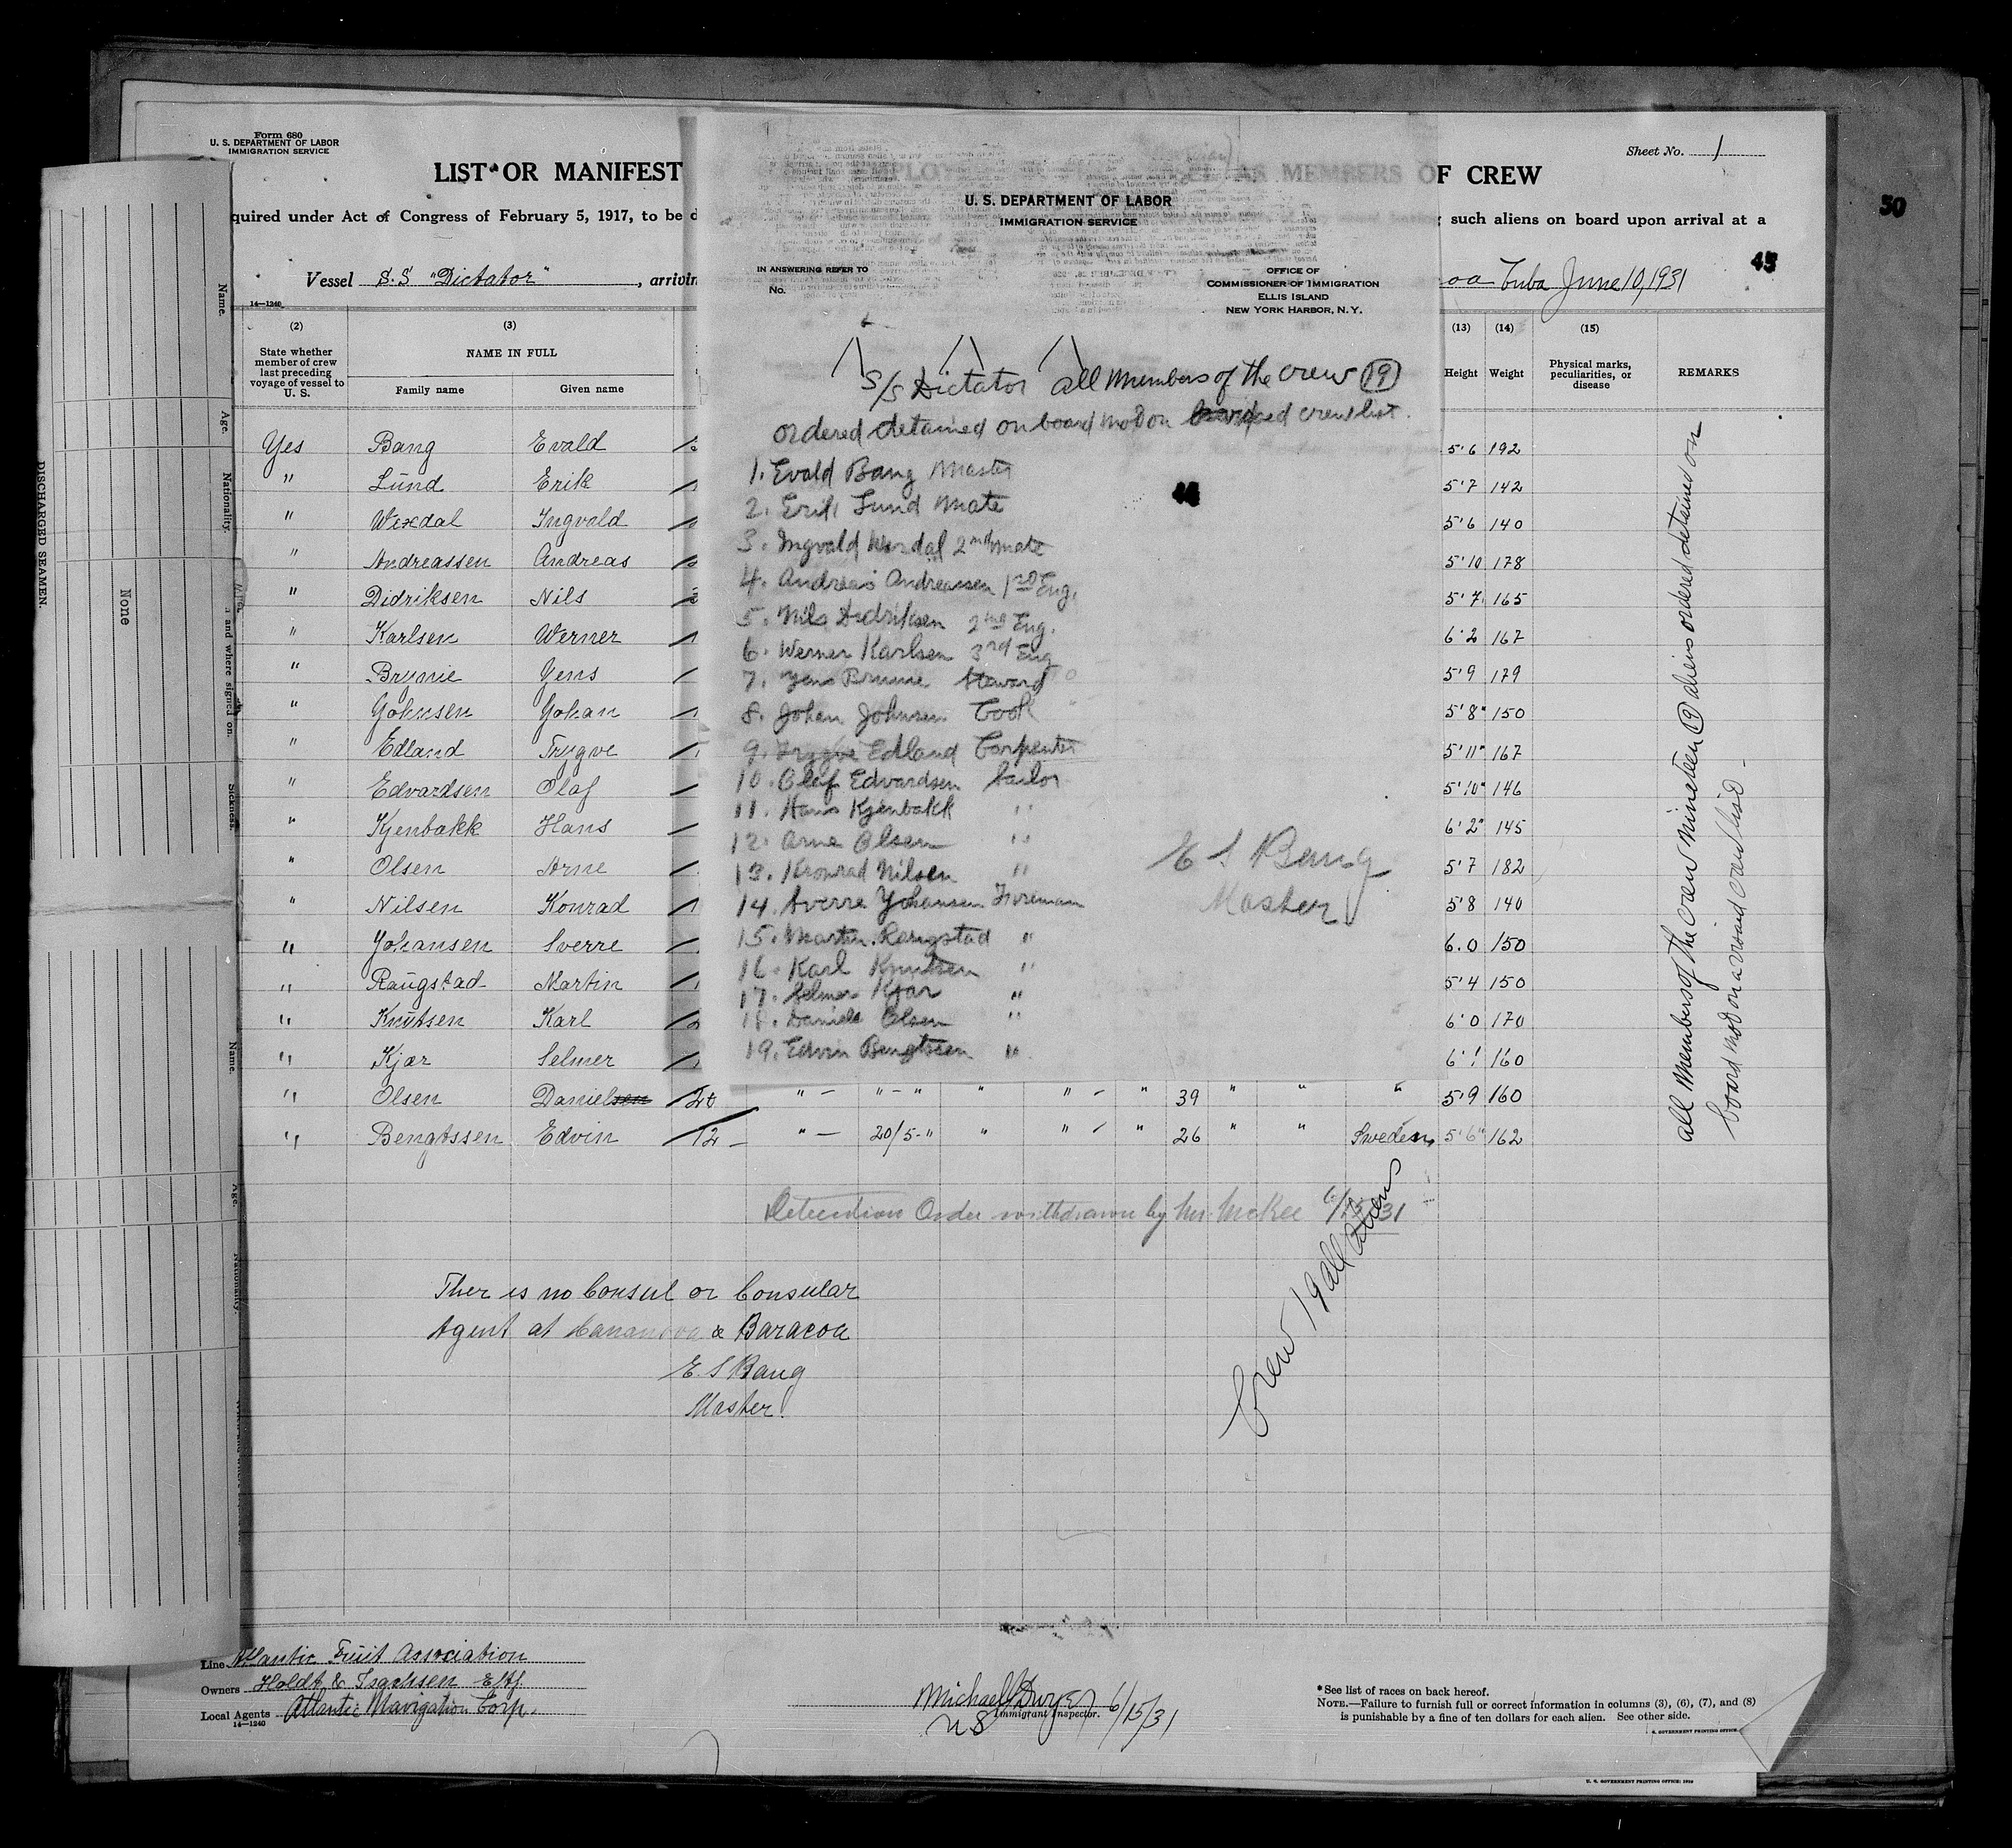 Form 680
U. S. DEPARTMENT OF LABOR
IMMIGRATION SERVICE
Sheet No. 1
LIST OR MANIFEST
F CREW
quired under Act of Congress of February 5, 1917, to be d
such aliens on board upon arrival at a
50
45
Vessel S.S "Dictator", arrivin
oa Cuba June 10, 1931
14—1240
(2)
(3)
(13) (14) (15)
State whether member of crew last preceding voyage of vessel to U. S.
NAME IN FULL
Family name Given name
Height Weight Physical marks, peculiarities, or disease REMARKS
Yes Bang Evald 5'6 192
" Lund Erik 5'7 142
" Wexdal Ingvald 5'6 140
" Andreassen Andreas 5'10 178
" Didriksen Nils 5'7 165
" Karlsen Werner 6'2 167
" Brynie Yens 5'9 179
" Yohnsen Yohan 5'8" 150
" Edland Trygve 5'11" 167
" Edvardsen Olaf 5'10" 146
" Kjenbakk Hans 6'2" 145
" Olsen Arne 5'7 182
" Nilsen Konrad 5'8 140
" Yohansen Sverre 6.0 150
" Raugstad Martin 5'4 150
" Knutsen Karl 6'0 170
" Kjær Selmer 6'1 160
" Olsen Danielsen 20 " — " – " " " – " 39 " " " 5'9 160
" Bengtssen Edvin 12 – " — 20/5-" " " – " 26 " " Sweden 5'6" 162
All members of the crew nineteen (19) aliens ordered detained on
board mod on a visaed crew list –
U. S. DEPARTMENT OF LABOR
IMMIGRATION SERVICE
IN ANSWERING REFER TO
No.
OFFICE OF
COMMISSIONER OF IMMIGRATION
ELLIS ISLAND
NEW YORK HARBOR, N.Y.
S/S Dictator all members of the crew (19)
ordered detained on board mod on crew list.
1. Evald Bang Master
2. Erik Lund Mate
3. Ingvald Wexdal 2nd mate
4. Andreas Andreassen 1st Eng.
5. Nils Didriksen 2nd Eng.
6. Werner Karlsen 3rd Eng
7. Yens Brunie Steward
8. Johan Johnsen Cook
9. Trygve Edland Carpenter
10. Olaf Edvardsen Sailor
11. Hans Kjenbakk "
12. Arne Olsen "
13. Konrad Nilsen "
14. Sverre Yohansen Fireman
15. Martin Rangstad "
16. Karl Knutsen "
17. Selmer Kjar "
18. Daniele Olsen "
19. Edvin Bengtssen "
E S Bang
Master
Detention Order withdrawn by Mr. McKee 6/15/31
Crew 19 all aliens
Ther is no Consul or Consular
Agent at & Baracoa
E. S Bang
Master.
Line Atlantic Fruit Association
Owners Holdt & Isachsen
Local Agents Atlantic Navigation Corp.
14—1240
Michael Dwyer 6/15/31
Immigrant Inspector.
*See list of races on back hereof.
NOTE.—Failure to furnish full or correct information in columns (3), (6), (7), and (8)
is punishable by a fine of ten dollars for each alien. See other side.
U. S. GOVERNMENT PRINTING OFFICE
DISCHARGED SEAMEN.
None
Name.
Age.
Nationality.
and where signed on.
Sickness.
Name.
Age.
Nationality.